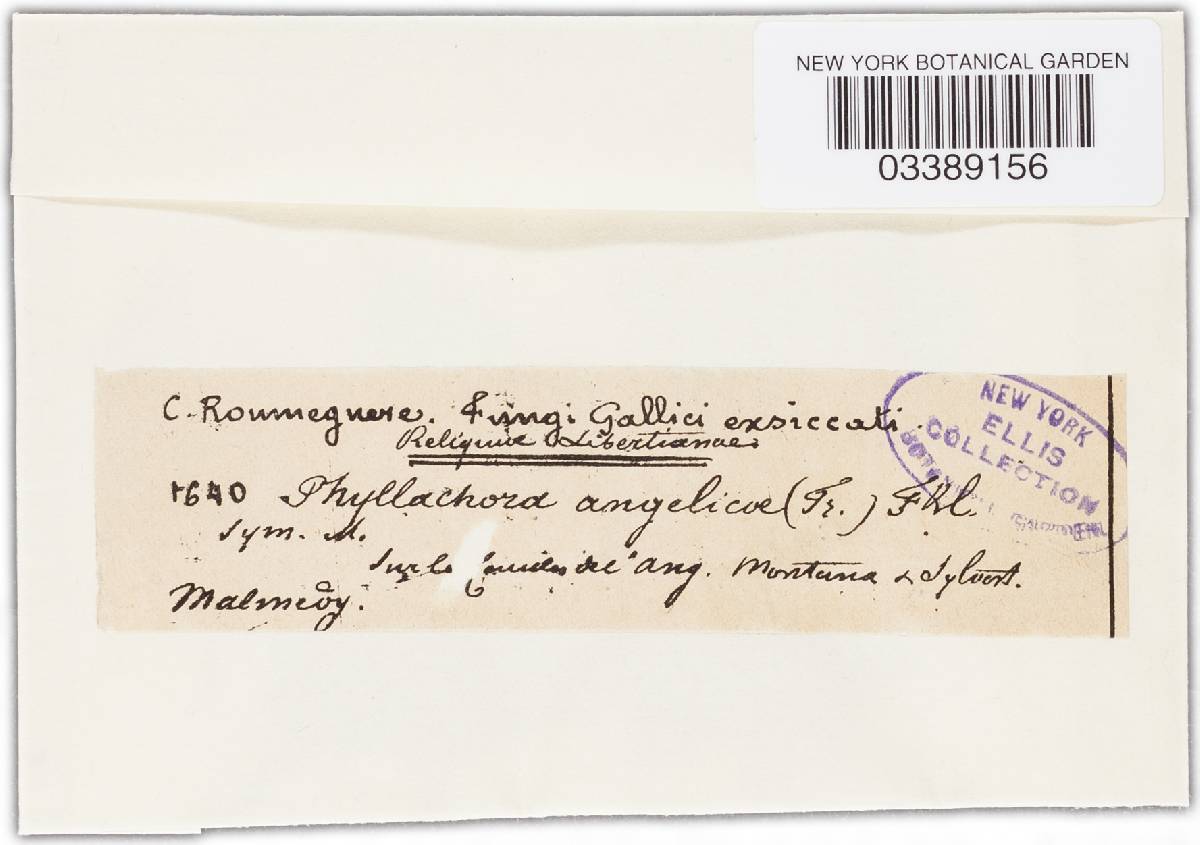 NEW YORK BOTANICAL GARDEN
03389156
C. Roumeguere. Fungi Gallici exsiccati.
Reliquiae Libertianae.
NEW YORK
ELLIS
COLLECTION
1640 Phyllachora angelicae (Fr.) Fkl.
Sym. M.
Sur les feuilles de l'ang. Montana & Sylvest.
Malmedy.